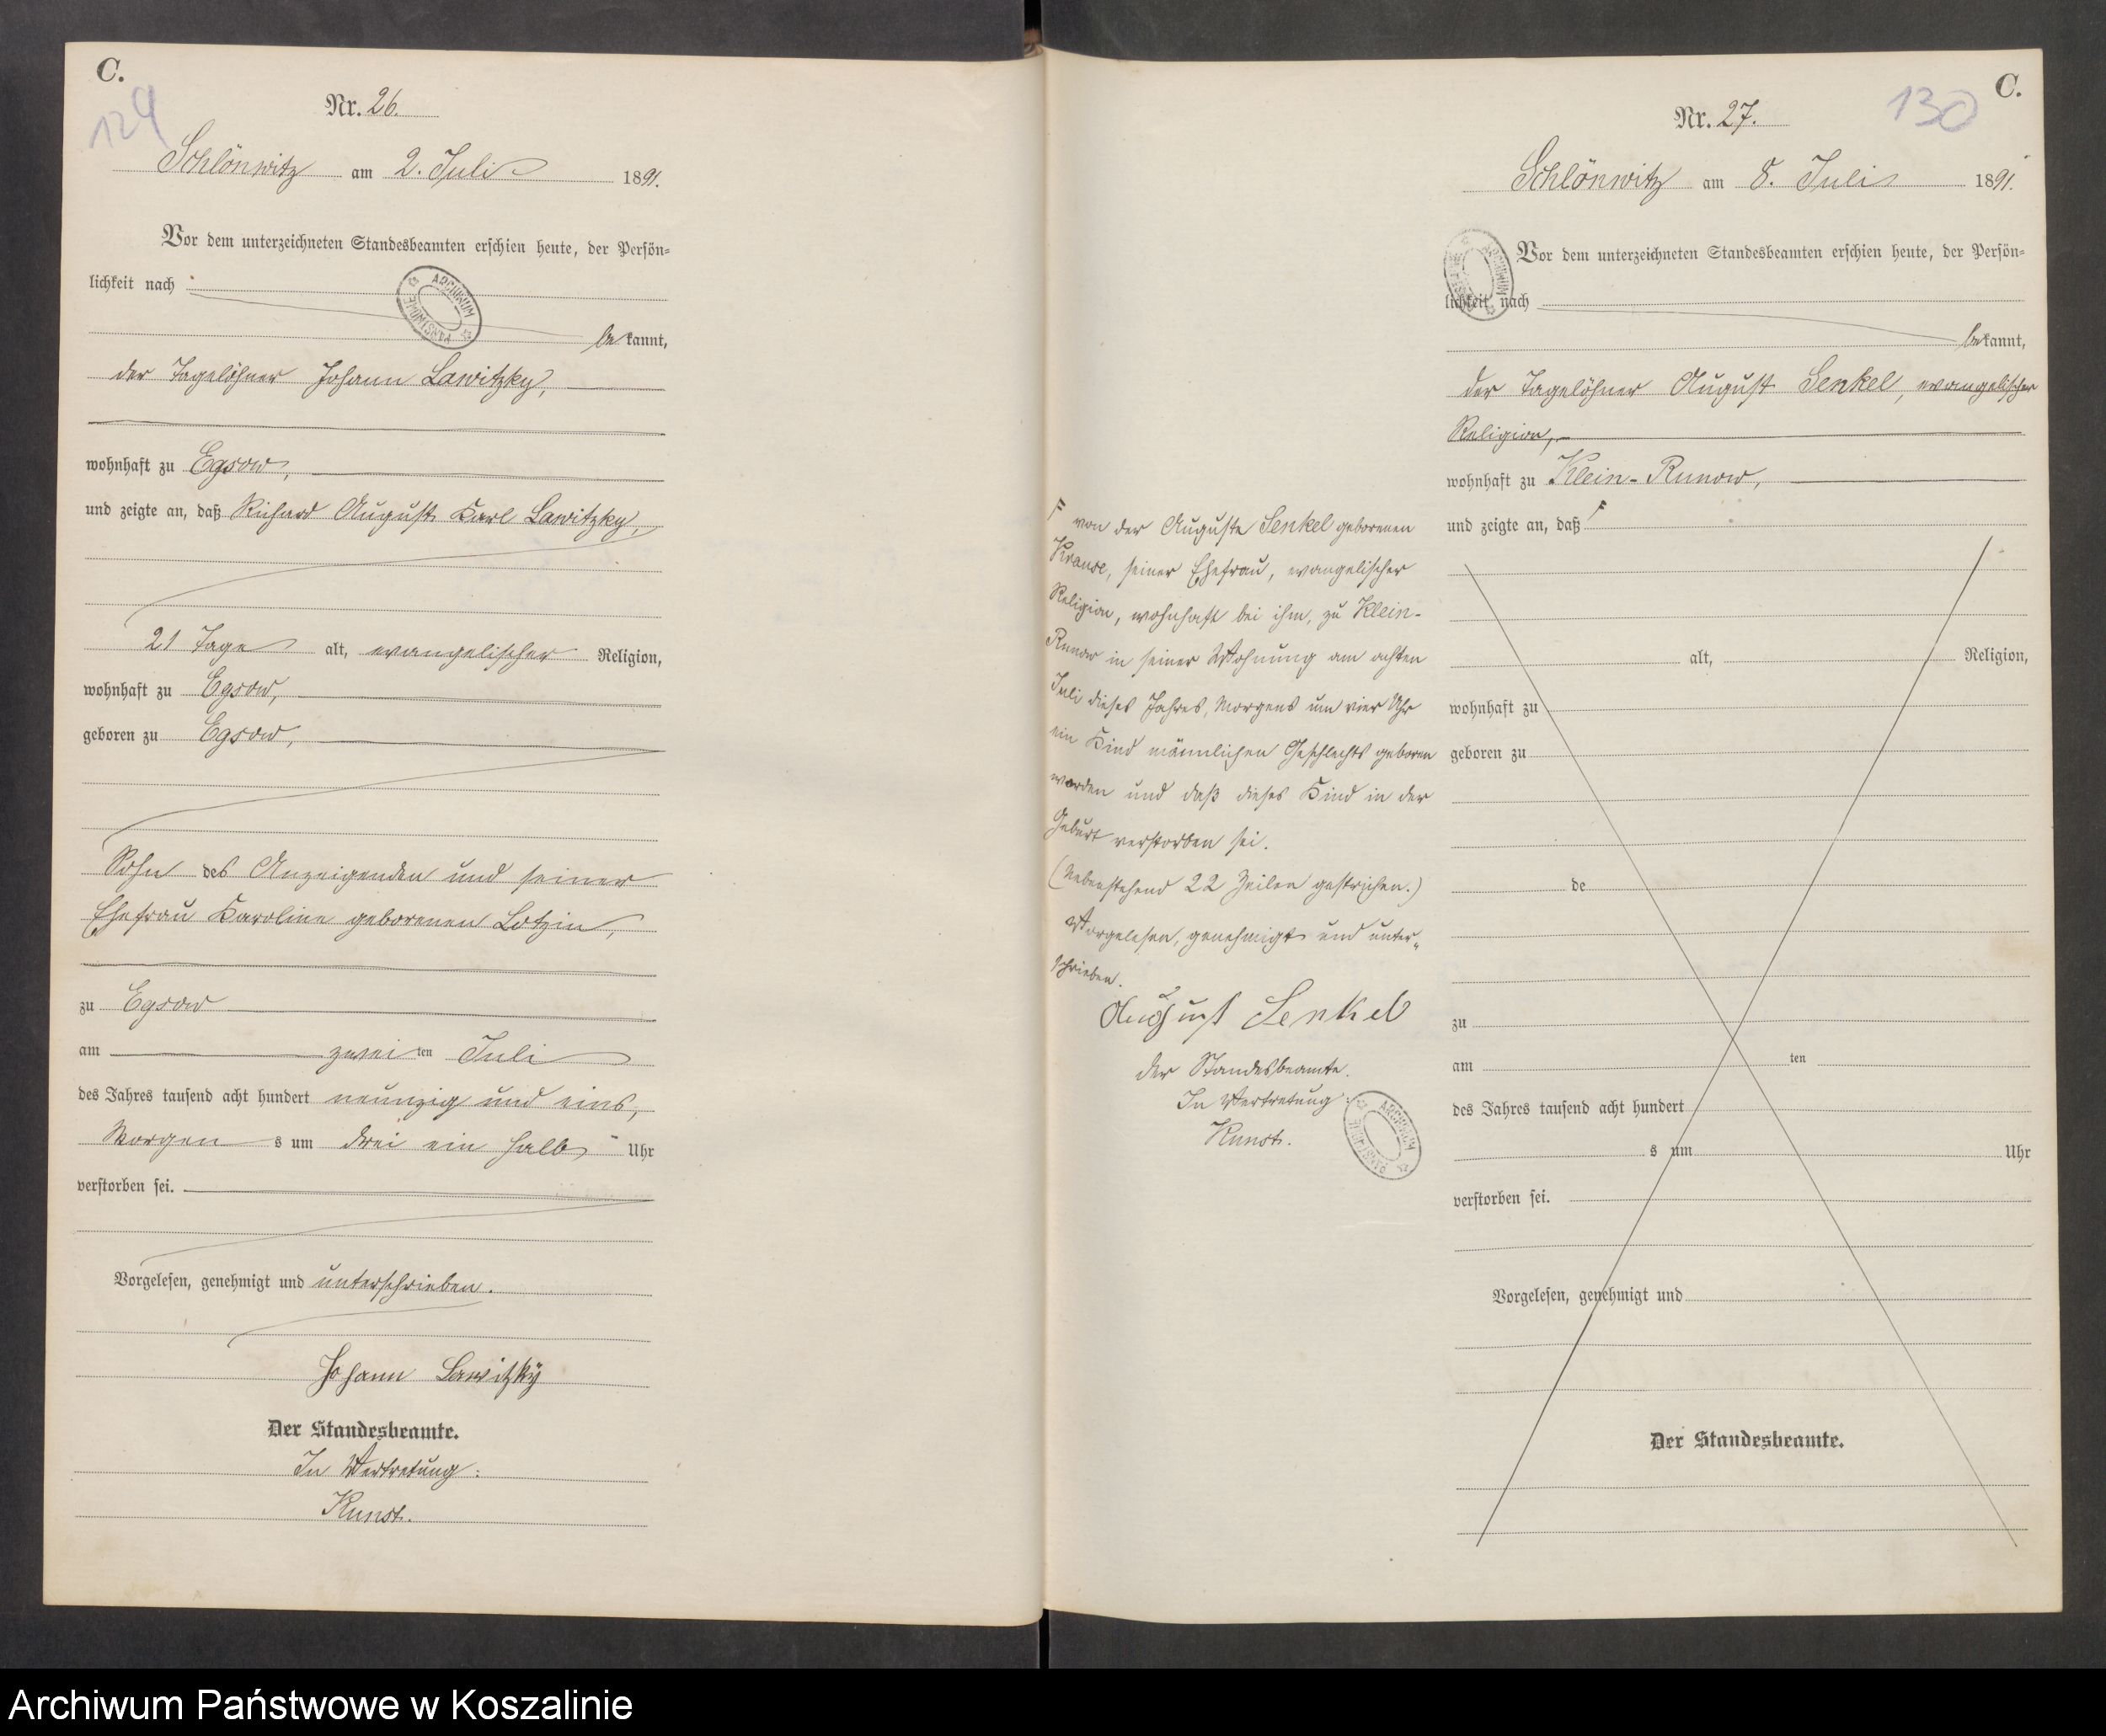 C.
129
Nr. 26.
Schlönwitz am 2. Juli 1891.
Vor dem unterzeichneten Standesbeamten erschien heute, der Persön-
lichkeit nach
bekannt,
der Tagelöhner Johann Lawitzky,
wohnhaft zu Egsow,
und zeigte an, daß Richard August Karl Lawitzky,
21 Tage alt, evangelischer Religion,
wohnhaft zu Egsow,
geboren zu Egsow,
Sohn des Anzeigenden und seiner
Ehefrau Karoline geborenen Lotzin,
zu Egsow
am zweiten Juli
des Jahres tausend acht hundert neunzig und eins,
Morgens um drei ein halb Uhr
verstorben sei.
Vorgelesen, genehmigt und unterschrieben.
Johann Lawitzky
Der Standesbeamte.
In Vertretung:
Kunst.
C.
130
Nr. 27.
Schlönwitz am 8. Juli 1891.
Vor dem unterzeichneten Standesbeamten erschien heute, der Persön-
lichkeit nach
bekannt,
der Tagelöhner August Senkel, evangelischer
Religion,
wohnhaft zu Klein-Runow,
und zeigte an, daß
von der Auguste Senkel geborenen
Krause, seiner Ehefrau, evangelischer
Religion, wohnhaft bei ihm, zu Klein-
Runow in seiner Wohnung am achten
Juli dieses Jahres, Morgens um vier Uhr
ein Kind männlichen Geschlechts geboren
worden und daß dieses Kind in der
Geburt verstorben sei.
(Nebenstehend 22 Zeilen gestrichen.)
Vorgelesen, genehmigt und unter-
schrieben.
August Senkel
Der Standesbeamte.
In Vertretung:
Kunst.
alt, Religion,
wohnhaft zu
geboren zu
de
zu
am ten
des Jahres tausend acht hundert
s um Uhr
verstorben sei.
Vorgelesen, genehmigt und
Der Standesbeamte.
ARCHIWUM PAŃSTWOWE
ARCHIWUM PAŃSTWOWE
ARCHIWUM PAŃSTWOWE
Archiwum Państwowe w Koszalinie